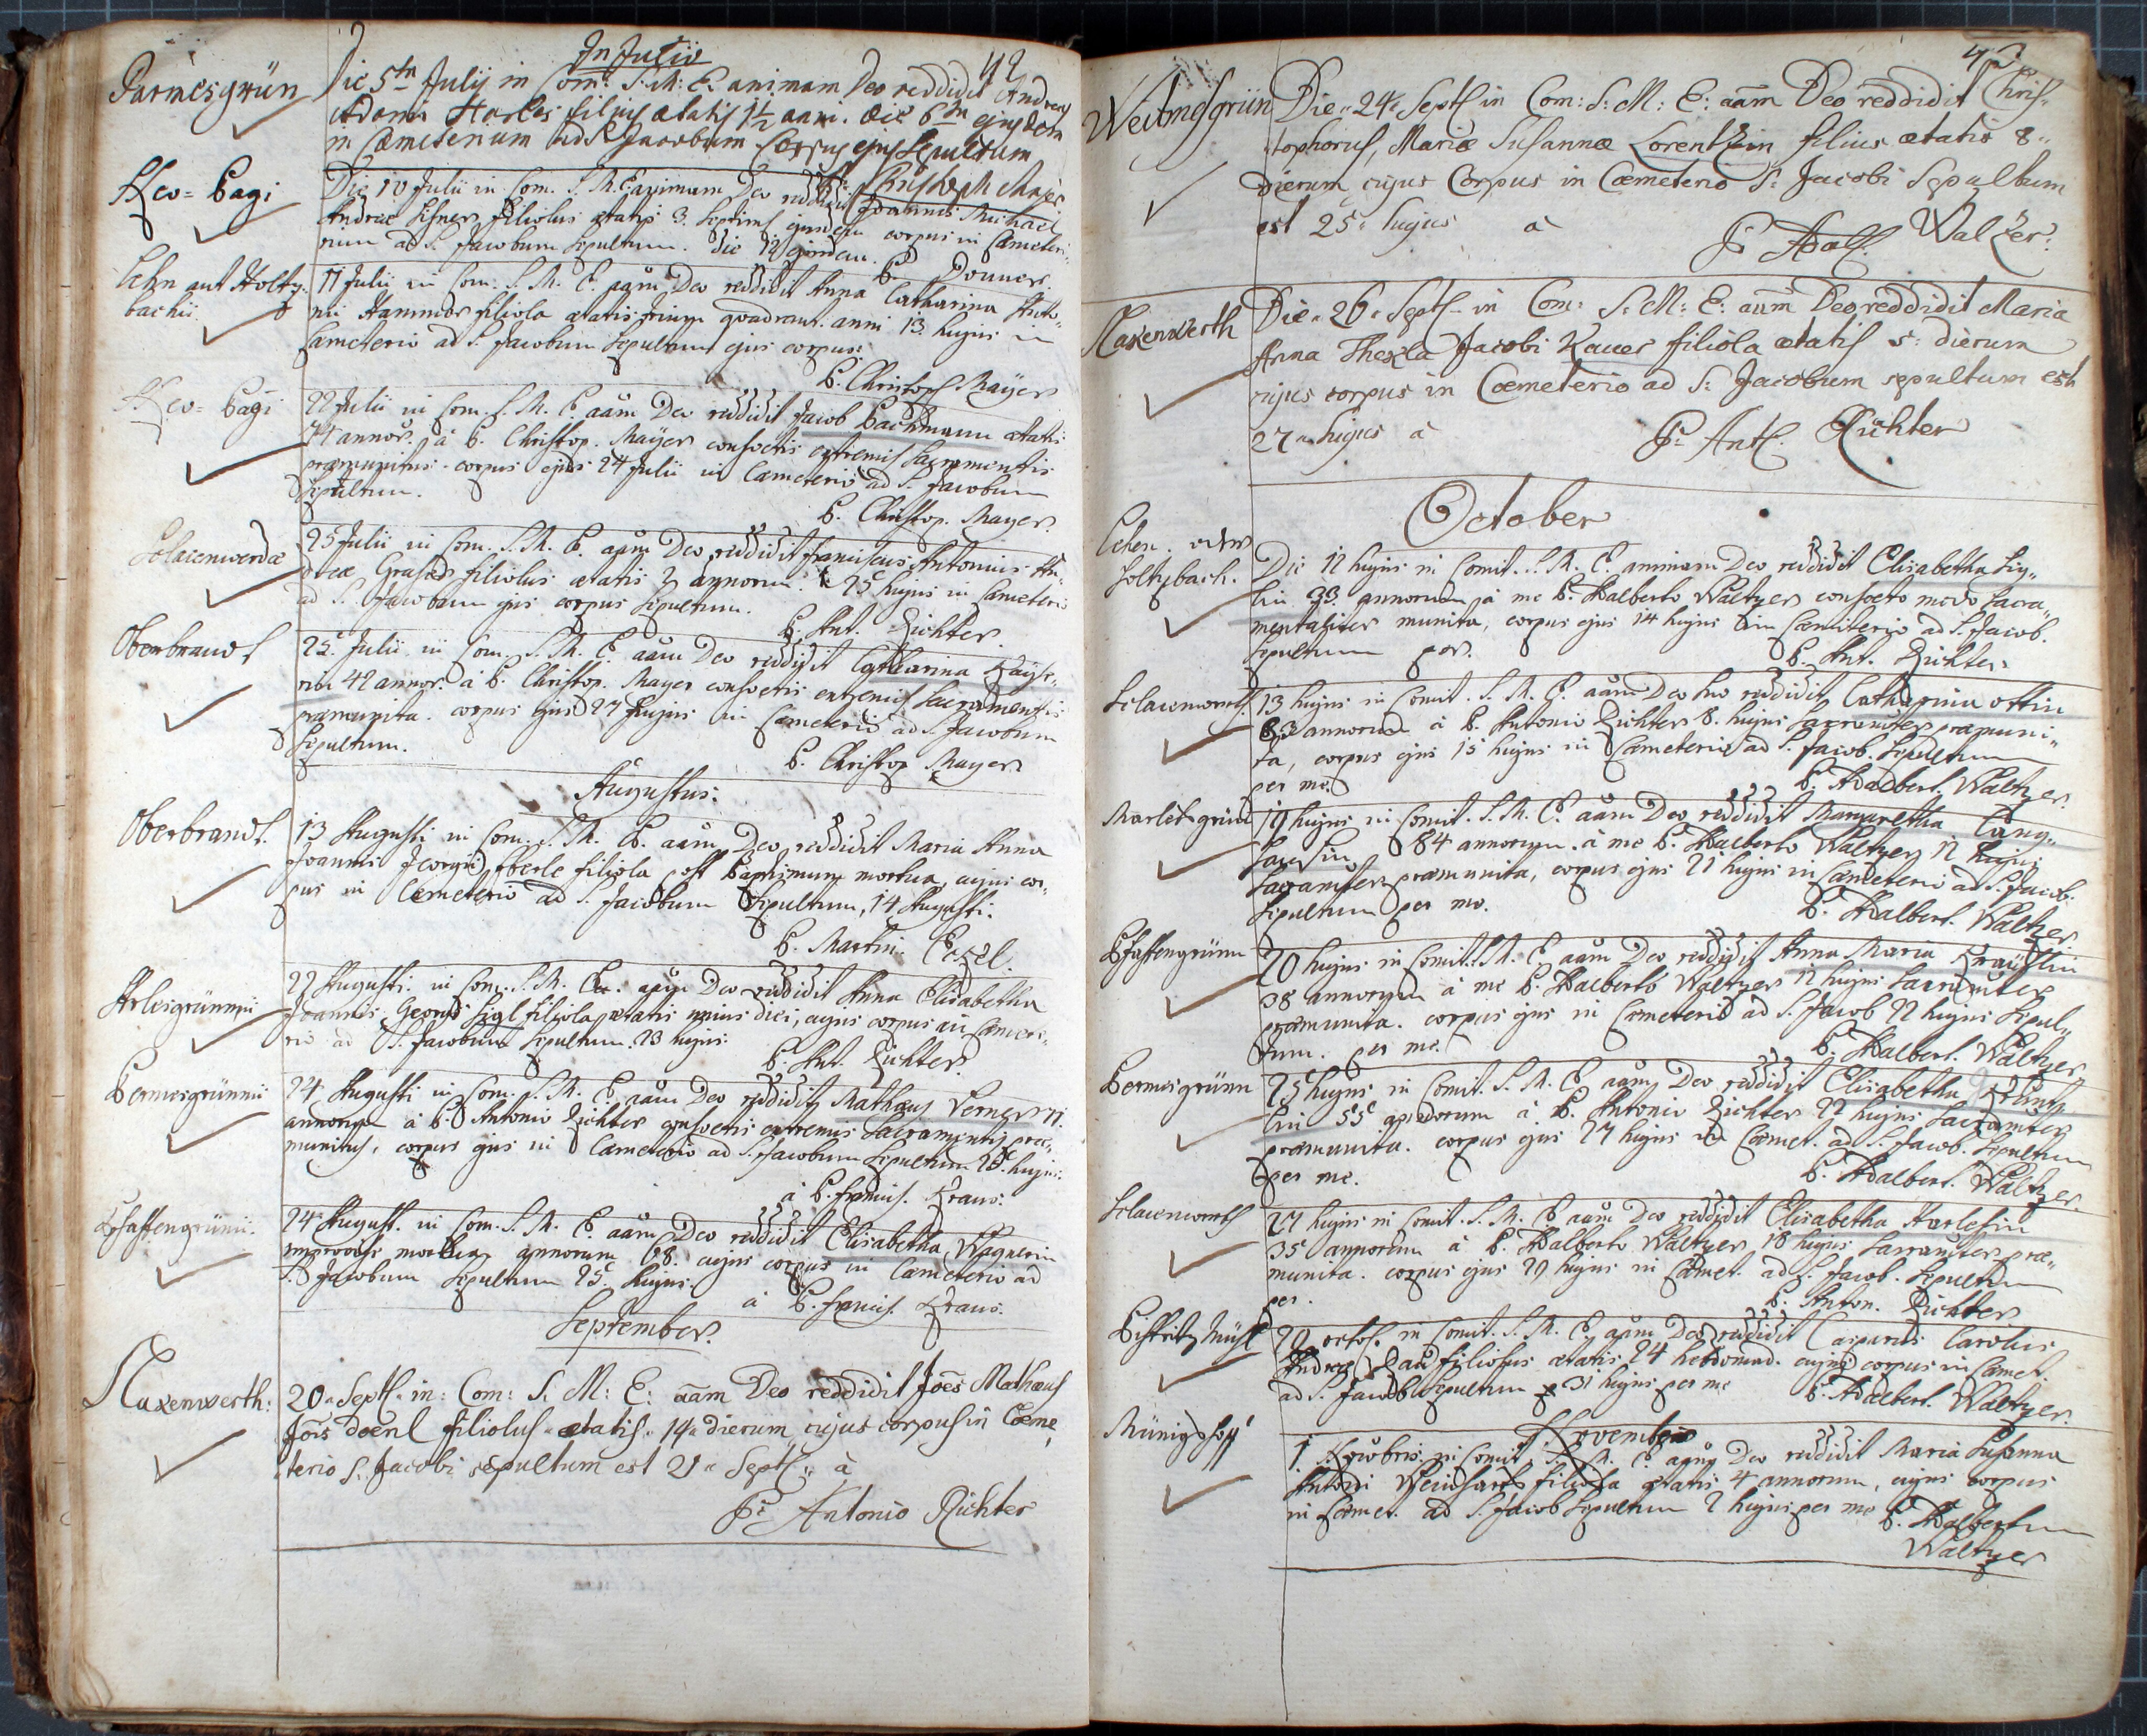 In Julio
42
Parmesgrün
Die 5ta Julij in Com: S: M: E: animam Deo reddidit Andreas
Adami Harles filius ætatis 1½ anni. die 6ta ejusdem
in Cæmeterium ad S. Jacobum Corpus ejus sepultum
P: Christoph Mayer
Neo-Pagi
Die 10 Julii in Com. S. M. E. animam Deo reddidit Joannes Michael
Andreæ filiolus ætatis 3. Septim. ejusdem corpus in Cæmete-
rium ad S. Jacobum sepultum. die 12 ejusdem.
P. Donner.
Lehn aut Holtz-
bachii.
11 Julii in Com. S. M. E. aam Deo reddidit Anna Catharina Anto-
nii Hammer filiola ætatis anni 13 hujus in
Cæmeterio ad S. Jacobum sepultum ejus corpus:
P. Christoph Mayer
Neo-Pagi
22 Julii in Com. S. M. E. aam Deo reddidit Jacob Bachmann ætatis
74 annor. à P. Christop. Mayer consvetis extremis Sacramentis
præmunitus. corpus ejus 24 Julii in Cæmeterio ad S. Jacobum
sepultum.
P. Christop. Mayer.
Solacenwerdæ
25 Julii in Com. S. M. E. aam Deo reddidit Franciscus Antonius An-
dreæ Graser filiolus ætatis annorum. 25 hujus in Cæmeterio
ad S. Jacobum ejus corpus sepultum.
P. Ant. Richter.
Oberbrandt
25 Julii in Com. S. M. E. aam Deo reddidit Catharina
42 annor. à P. Christop. Mayer consvetis extremis Sacramentis
præmunita. corpus ejus 27 hujus in Cæmeterio ad S. Jacobum
sepultum.
P. Christop Mayer.
Augustus:
Oberbrandt.
13 Augusti in Com. S. M. E. aam Deo reddidit Maria Anna
Joannis Georgii Eberle filiola post Baptismum mortua, cujus cor-
pus in Cæmeterio ad S. Jacobum sepultum, 14 Augusti.
P. Martin
Arlesgrünnii
22 Augusti in Com. S. M. E. aam Deo reddidit Anna Elisabetha
Joannis Georgii Sigl filiola ætatis unius diei, cujus corpus in Cæmete-
rio ad S. Jacobum sepultum. 23 hujus.
P. Ant. Richter.
Permesgrünnii
24 Augusti in Com. S. M. E. aam Deo reddidit Mathæus Lerner 71
annorum à P. Antonio Richter consvetis extremis Sacramentis præ-
munitus, corpus ejus in Cæmeterio ad S. Jacobum sepultum 25 hujus.
à P. Francis. Kraus.
Pfaffengrünii.
24 August. in Com. S. M. E. aam Deo reddidit Elisabetha Wagnerin
improvise mortua annorum 68. cujus corpus in Cæmeterio ad
S. Jacobum sepultum 25 hujus.
à P. Francis. Kraus.
September.
Haxenwerth:
20a Septl. in: Com: S. M: E: aam Deo reddidit Joes Mathæus
Jois Doenl filiolus ætatis 14 dierum cujus corpus in Cæme
terio S. Jacobi sepultum est 21a Septl. à
Pr Antonio Richter
43
Weitmesgrün
Die 24a Septl in Com: S: M: E: aam Deo reddidit Chris-
tophorus, Mariæ Susannæ Lorentzin filius ætatis 8
dierum, cujus Corpus in Cæmeterio S: Jacobi Sepultum
est 25a hujus à
Pr Adalb. Walzer.
Haxenwerth
Die 26a Septl in Com: S: M: E: aam Deo reddidit Maria
Anna Thekla Jacobi Kauer filiola ætatis 5: dierum
cujus corpus in Cæmeterio ad S: Jacobum sepultum est
27a hujus à
Pr Ant. Richter
October
Lehen oder
Holtzbach.
Die 12 hujus in Comit. S. M. E. animam Deo reddidit Elisabetha Sig-
lin 33 annorum à me P. Adalberto Waltzer consveto modo Sacra-
mentaliter munita, corpus ejus 14 hujus in Cæmeterio ad S. Jacob.
sepultum per.
P. Ant. Richter.
Sclacenwerth
13 hujus in Comit. S. M. E. aam Deo suo reddidit Catharina Ottin
63 annorum à P. Antonio Richter 8. hujus Sacramentaliter præmuni-
ta, corpus ejus 15 hujus in Cæmeterio ad S. Jacob. sepultum
per me.
P. Adalbert. Waltzer.
Marletsgrün
19 hujus in Comit. S. M. E. aam Deo reddidit Margaretha Lang-
84 annorum. à me P. Adalberto Waltzer 12 hujus
præmunita, corpus ejus 21 hujus in Cæmeterio ad S. Jacob.
sepultum per me.
P. Adalbert. Waltzer
Pfaffengrünn
20 hujus in Comit. S. M. E. aam Deo reddidit Anna Maria
38 annorum à me P. Adalberto Waltzer 12 hujus
præmunita. corpus ejus in Cæmeterio ad S. Jacob 22 hujus sepul-
tum. per me.
P. Adalbert. Waltzer
Permesgrünn
25 hujus in Comit. S. M. E. aam Deo reddidit Elisabetha
lin 55 annorum à P. Antonio Richter 22 hujus
præmunita. corpus ejus 27 hujus in Cæmet. ad S. Jacob. sepultum
per me.
P. Adalbert. Waltzer.
Sclacenwerth
27 hujus in Comit. S. M. E. aam Deo reddidit Elisabetha Harlesin
35 annorum à P. Adalberto Waltzer 18 hujus præ-
munita. corpus ejus 29 hujus in Cæmet. ad S. Jacob. sepultum
per.
P. Anton. Richter
29 octob. in Comit. S. M. E. aam Deo reddidit Casparus Carolus
Andreæ filiolus ætatis 24 hebdomad. cujus corpus in Cæmet.
ad S. Jacob sepultum 31 hujus per me
P. Adalbert. Waltzer.
November
1 Novobris in Comit. S. M. E. aam Deo reddidit Maria Susanna
Antonii filiola ætatis 4 annorum, cujus corpus
in Cæmet. ad S. Jacob sepultum 2 hujus per me P. Adalbertum
Waltzer